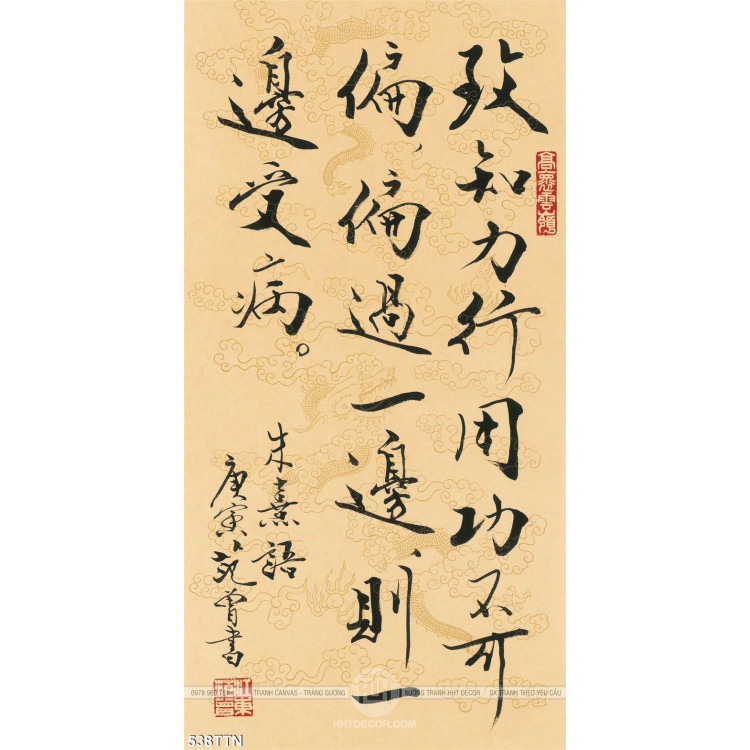 致知力行用功不可
偏、偏過一邊、則一
邊受病。
朱熹語
庚寅、范曾書
TRANH CANVAS - TRÁNG GƯƠNG
XƯỞNG TRANH HHT DECOR / SX TRANH THEO YÊU CẦU
HHTDECOR.COM
538TTN